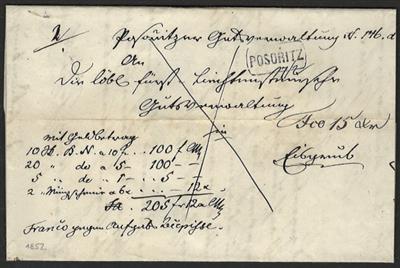 Posořitzer Gutsverwaltung N. 146.
POSORITZ
17/2
An
Die löbl. fürst. Liechtensteinsche
Gutsverwaltung
in
Eisgrub
mit Geldbetrag
10 St. B.N. a 10 f. . . . 100 f CMz
20 " do a 5 . . . 100 — —
5 " do " 1 — . . 5 — —
2 Münzscheine a 6 x . . . — 12 x
205 f 12 x CMz
Franco gegen Aufgabs Recepisse.
1852.